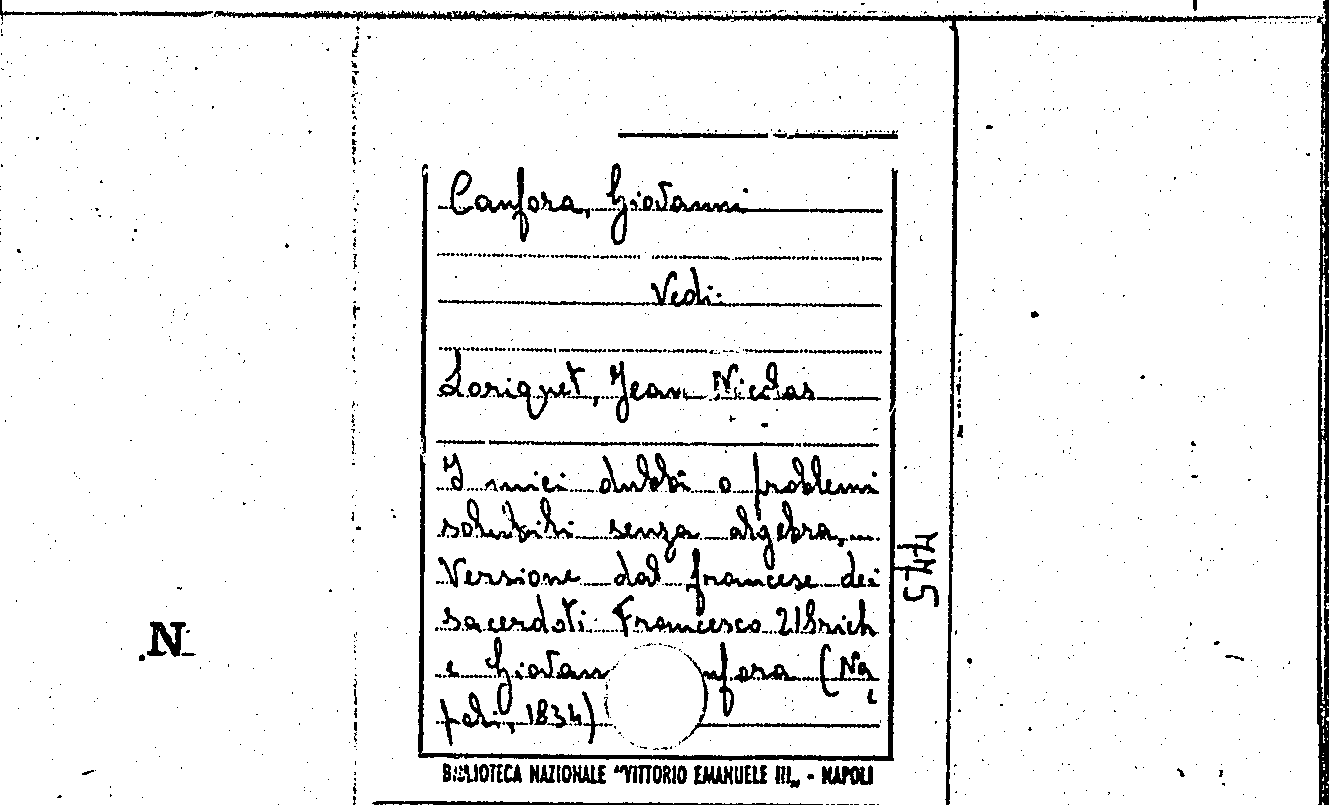 Canfora, Giovanni
Vedi:
Loriquet, Jean Nicolas
I miei dubbi o problemi
solubili senza algebra,...
Versione dal francese dei
sacerdoti Francesco
e Giovan nfora (Na
poli, 1834)
BIBLIOTECA NAZIONALE "VITTORIO EMANUELE III„ - NAPOLI
5744
N